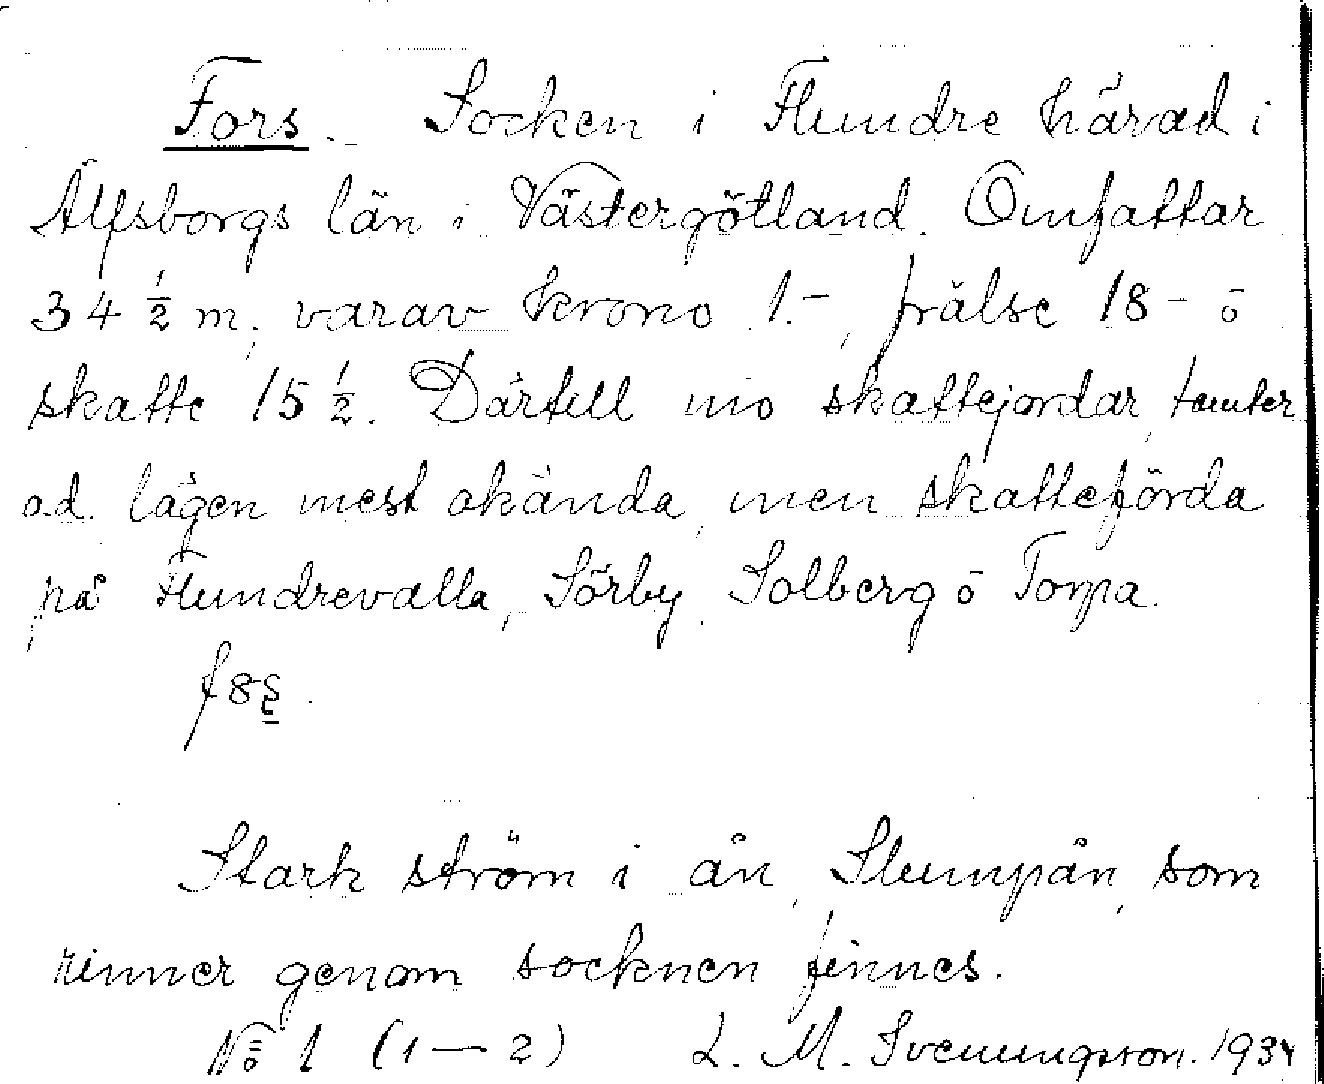 Fors. Socken i Flundre härad i
Älfsborgs län i Västergötland. Omfattar
34 ½ m, varav krono 1.-, frälse 18- ō
skatte 15 ½. Därtill nio skattejordar, tomter
o.d. lägen mest okända, men skatteförda
på Flundrevalla, Sörby, Solberg ō Torpa.
Stark ström i ån, Slumpån, som
rinner genom socknen finnes.
No 1 (1—2) L. M. Svenungsson. 1934